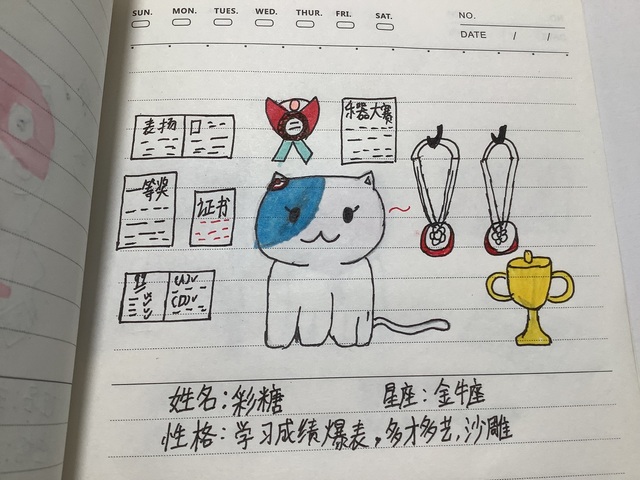 SUN. MON. TUES. WED. THUR. FRI. SAT.
NO.
DATE / /
表扬
乐器大赛
一等奖
证书
姓名:彩糖
星座:金牛座
性格:学习成绩爆表,多才多艺,沙雕